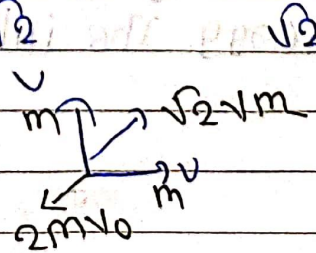 √2 √2
v
m √2vm
m v
2mv0